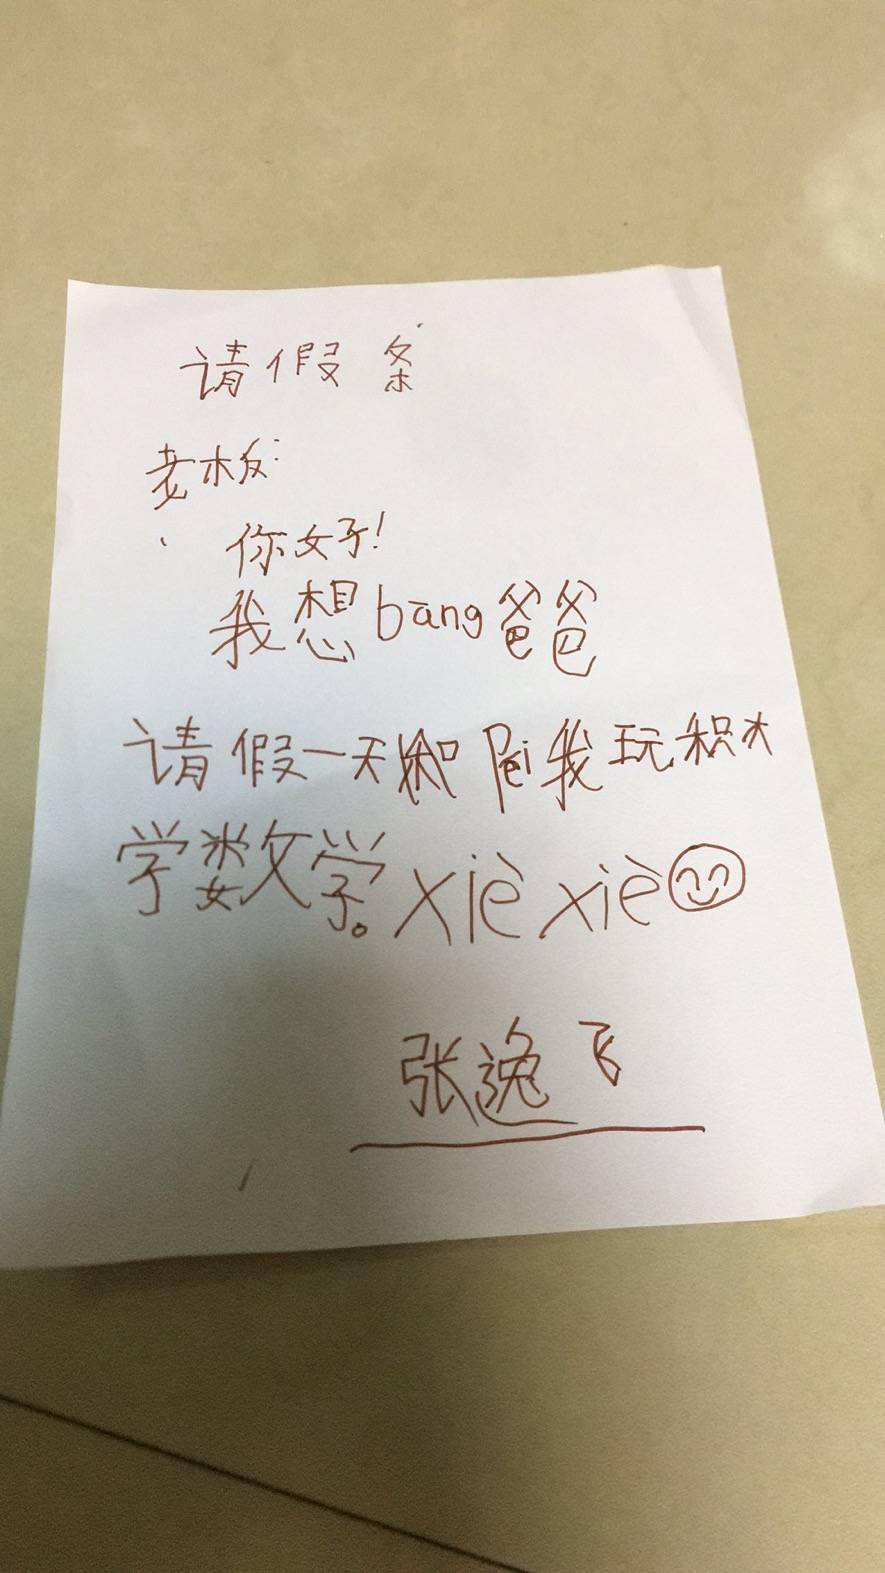 请假条
老板:
你好!
我想bāng爸爸
请假一天和Péi我玩积木
学数学。xiè xiè
张逸飞